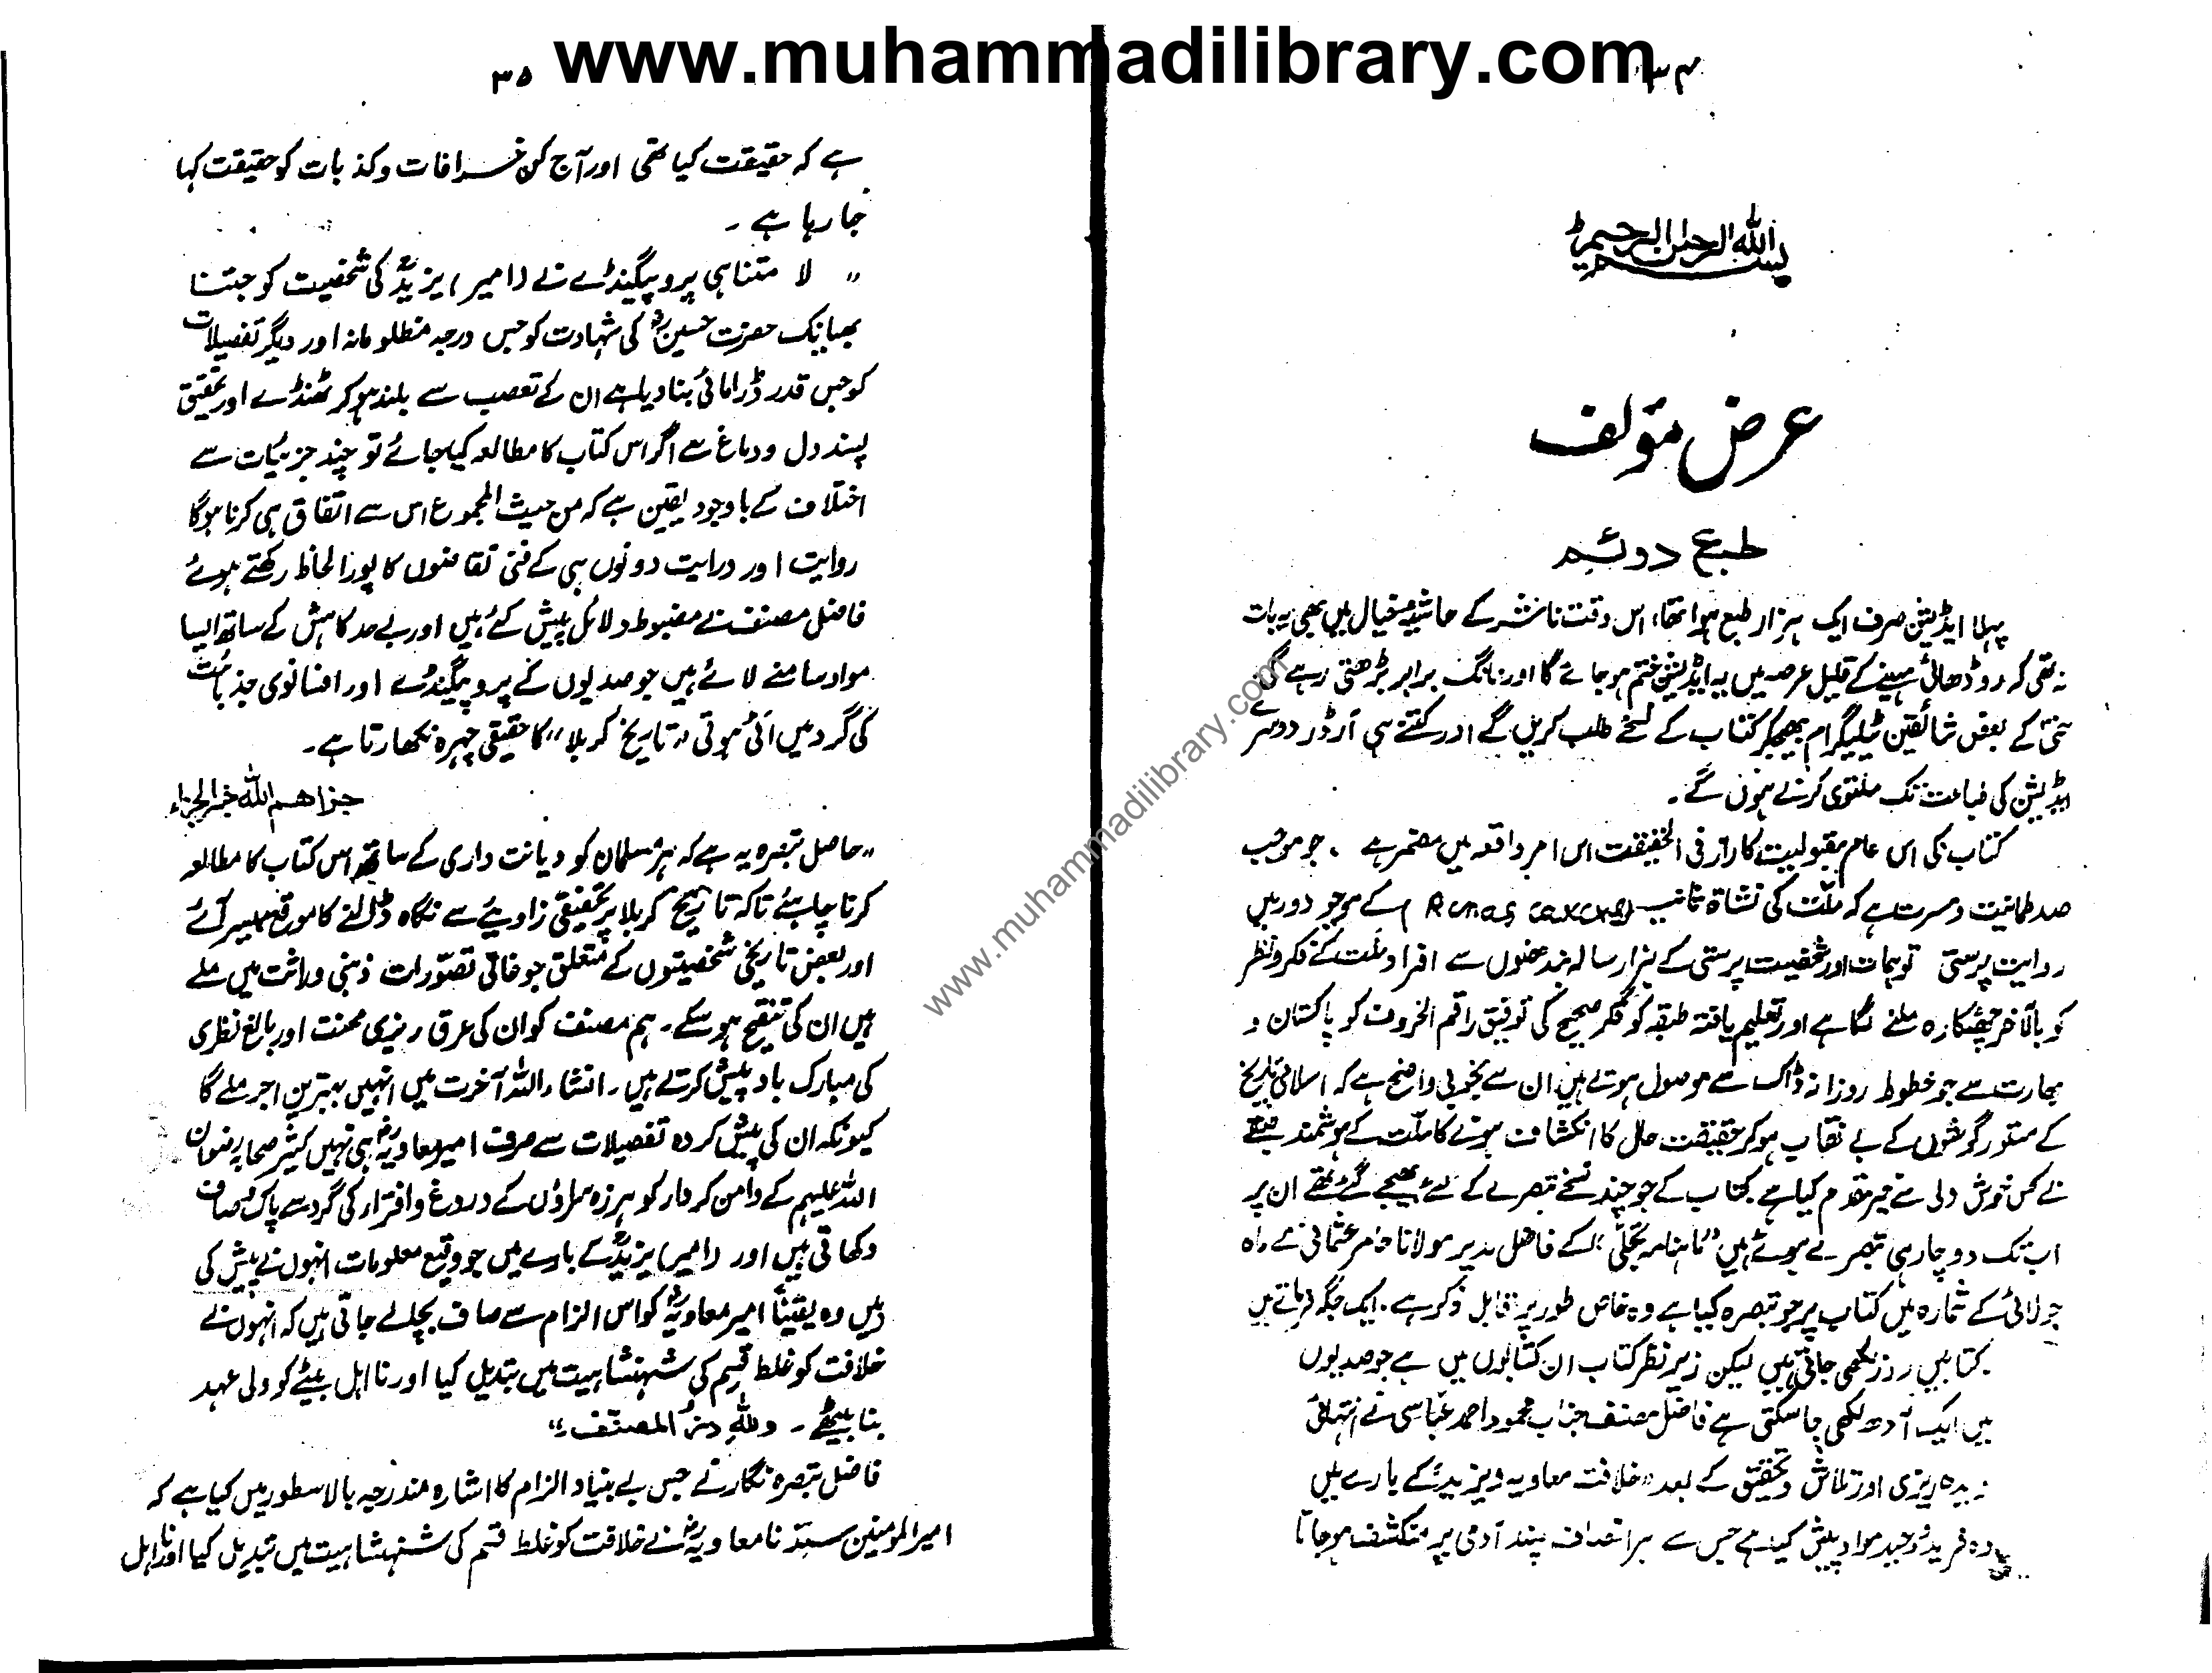 www.muhammadilibrary.com
۳۴
بسم الله الرحمن الرحیم
عرض مؤلف
طبع دوئم
پہلا ایڈیشن صرف ایک ہزار طبع ہوا تھا، اس وقت ناشر کے حاشیہ خیال میں بھی یہ بات
نہ تھی کہ دو ڈھائی مہینے کے قلیل عرصہ میں یہ ایڈیشن ختم ہو جائے گا اور مانگ برابر بڑھتی رہے گی
حتیٰ کے بعض شائقین ٹیلیگرام بھیجکر کتاب کے نسخے طلب کریں گے اور کتنے ہی آرڈر دوسرے
ایڈیشن کی طباعت تک ملتوی کرنے ہوں گے۔
کتاب کی اس عام مقبولیت کا راز فی الحقیقت اس امر واقعہ میں مضمر ہے ۔ جو موجب
صد طمانیت و مسرت ہے کہ ملّت کی نشاۃ ثانیہ ( کے موجودہ دور میں
روایت پرستی توہمات اور شخصیت پرستی کے ہزار سالہ بندھنوں سے افراد ملّت کے فکر و نظر
کو بالآخر چھٹکارہ ملنے لگا ہے اور تعلیم یافتہ طبقہ کو فکر صحیح کی توفیق راقم الحروف کو پاکستان و
بھارت سے جو خطوط روزانہ ڈاک سے موصول ہوتے ہیں ان سے بخوبی واضح ہے کہ اسلامی تاریخ
کے مستور گوشوں کے بے نقاب ہو کر حقیقت حال کا انکشاف ہونے کا ملّت کے ہوشمند طبقے
نے کس خوش دلی سے خیر مقدم کیا ہے کتاب کے جو چند نسخے تبصرے کے لئے بھیجے گئے تھے ان پر
اب تک دو چار ہی تبصرے ہوئے ہیں "ماہنامہ تجلّی" کے فاضل مدیر مولانا عامر عثمانی نے ماہ
جولائی کے شمارہ میں کتاب پر جو تبصرہ کیا ہے وہ خاص طور پر قابل ذکر ہے۔ ایک جگہ فرماتے ہیں
کتابیں روز لکھی جاتی ہیں لیکن زیر نظر کتاب ان کتابوں میں ہے جو صدیوں
میں ایک آدھ لکھی جا سکتی ہے فاضل مصنف جناب محمود احمد عباسی نے انتہائی
دیدہ ریزی اور تلاش و تحقیق کے بعد "خلافت معاویہ و یزید" کے بارے میں
وہ فرید و وحید مواد پیش کیا ہے جس سے ہر انصاف پسند آدمی پر منکشف ہو جاتا
۳۵
ہے کہ حقیقت کیا تھی اور آج کن خرافات و کذبات کو حقیقت کہا
جا رہا ہے ۔
" لا متناہی پروپیگنڈے نے (امیر) یزیدؒ کی شخصیت کو جتنا
بھیانک حضرت حسینؓ کی شہادت کو جس درجہ مظلومانہ اور دیگر تفصیلات
کو جس قدر ڈرامائی بنا دیا ہے ان کے تعصب سے بلند ہو کر ٹھنڈے اور تحقیق
پسند دل و دماغ سے اگر اس کتاب کا مطالعہ کیا جائے تو چند جزئیات سے
اختلاف کے باوجود یقین ہے کہ من حیث المجموع اس سے اتفاق ہی کرنا ہوگا
روایت اور درایت دونوں ہی کے فنی تقاضوں کا پورا لحاظ رکھتے ہوئے
فاضل مصنف نے مضبوط دلائل پیش کئے ہیں اور بے حد کاہش کے ساتھ ایسا
مواد سامنے لائے ہیں جو صدیوں کے پروپیگنڈے اور افسانوی جذباتیت
کی گرد میں اَٹی ہوئی "تاریخ کربلا" کا حقیقی چہرہ نکھارتا ہے۔
جزاھم اللہ خیر الجزاء
"حاصل تبصرہ یہ ہے کہ ہر مسلمان کو دیانت داری کے ساتھ اس کتاب کا مطالعہ
کرنا چاہئے تاکہ تاریخ کربلا پر تحقیقی زاویئے سے نگاہ ڈالنے کا موقع میسر آئے
اور بعض تاریخی شخصیتوں کے متعلق جو خاتی تصوّرات ذہنی وراثت میں ملے
ہیں ان کی تنقیح ہو سکے۔ ہم مصنف کو ان کی عرق ریزی محنت اور بالغ نظری
کی مبارک باد پیش کرتے ہیں۔ انشاء اللہ آخرت میں انہیں بہترین اجر ملے گا
کیونکہ ان کی پیش کردہ تفصیلات سے صرف امیر معاویہؓ ہی نہیں کثیر صحابہ رضوان
اللہ علیہم کے دامن کردار کو ہرزہ سراؤں کے دروغ و افترار کی گرد سے پاک و صاف
دکھاتی ہیں اور (امیر) یزیدؒ کے بارے میں جو وقیع معلومات انہوں نے پیش کی
ہیں وہ یقیناً امیر معاویہؓ کو اس الزام سے صاف بچالے جاتی ہیں کہ انہوں نے
خلافت کو غلط قسم کی شہنشاہیت میں تبدیل کیا اور نا اہل بیٹے کو ولی عہد
بنا بیٹھے۔ وللہِ درّ المصنّف"
فاضل تبصرہ نگار نے جس بے بنیاد الزام کا اشارہ مندرجہ بالا سطور میں کیا ہے کہ
امیر المومنین سیّدنا معاویہؓ نے خلافت کو غلط قسم کی شہنشاہیت میں تبدیل کیا اور نااہل
www.muhammadilibrary.com